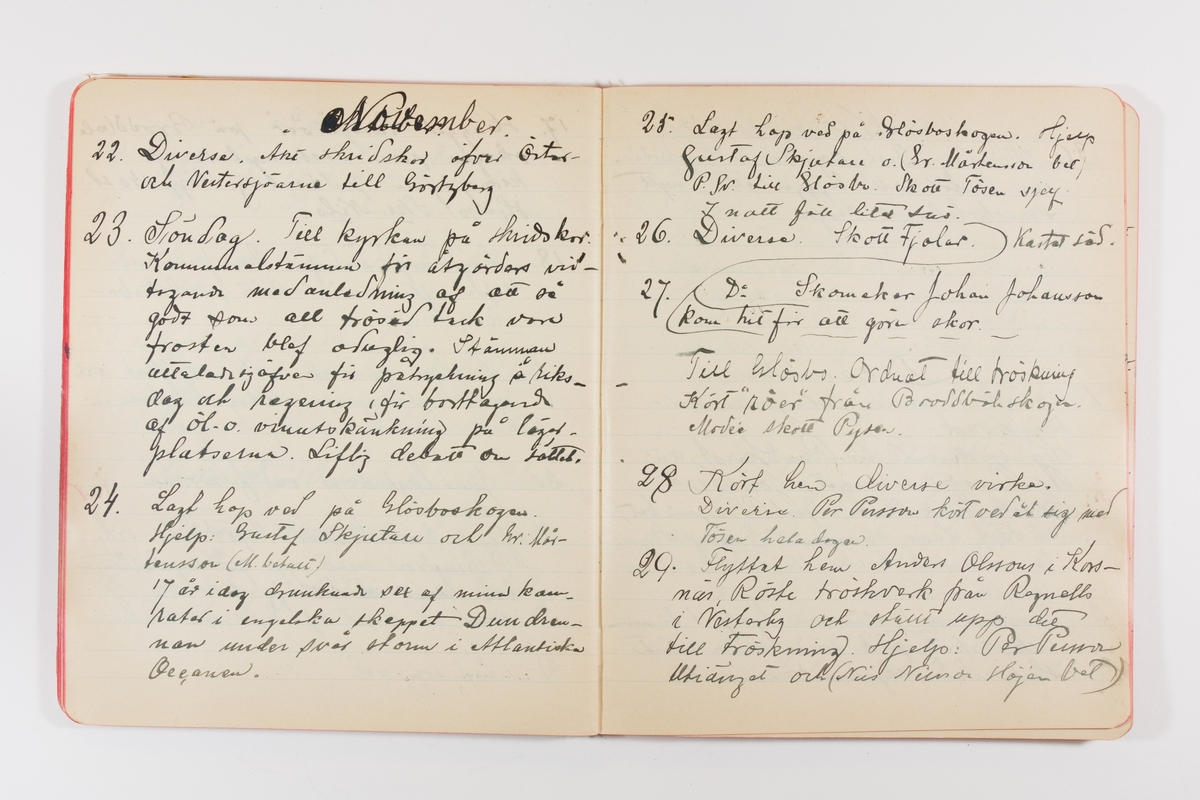 November.
22. Diverse. Åkt skridskor öfver Öster-
och Vestersjöarne till Görtzberg
23. Söndag. Till kyrkan på skridskor.
Kommunalstämma för åtgörders vid-
tagande med anledning af att så
godt som all trösäd tack vare
frosten blef oduglig. Stämman
uttalade sig äfven för påtryckning å riks-
dag och regering för borttagande
af öl- o. vinutskänkning på läger-
platserna. Liflig debatt om sättet.
24. Lagt hop ved på Glösboskogen.
Hjelp: Gustaf Skjutare och Er. Mår-
tensson (M. betalt)
17 år i dag drunknade sex af mina kam-
rater i engelska skeppet Dundren-
nan under svår storm i Atlantiska
Oceanen.
25. Lagt hop ved på Glösboskogen. Hjelp
Gustaf Skjutare o. (Er. Mårtensson bet)
P. Sv. till Glösbo. Skott Tösen sjelf.
I natt föll litet snö.
26. Diverse. Skott Fjolar. Kastat säd.
27. Do Skomaker Johan Johansson
kom hit för att göra skor.
Till Glösbo. Ordnat till tröskning
Kört "röer" från Broddbohskogen.
Modée skott Pysen.
28 Kört hem diverse virke.
Diverse. Per Persson kört ved åt sig med
Tösen hela dagen.
29. Flyttat hem Anders Olssons i Kors-
näs, Röste tröskverk från Regnells
i Vesterby och ställt upp det
till tröskning. Hjelp: Per Persson
Utiänget och (Nils Nilsson Höjen bet)